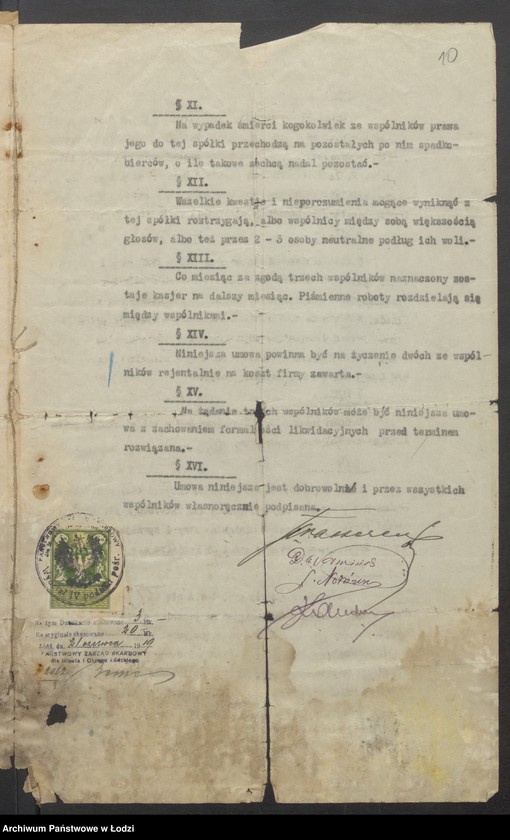 10
§ XI.
Na wypadek śmierci kogokolwiek ze wspólników prawa
jego do tej spółki przechodzą na pozostałych po nim spadko-
bierców, o ile takowe zechcą nadal pozostać.-
§ XII.
Wszelkie kwestje i nieporozumienia mogące wyniknąć z
tej spółki roztrzygają, albo wspólnicy między sobą większością
głosów, albo też przez 2 - 3 osoby neutralne podług ich woli.-
§ XIII.
Co miesiąc za zgodą trzech wspólników naznaczony zos-
taje kasjer na dalszy miesiąc. Piśmienne roboty rozdzielają się
między wspólnikami.-
§ XIV.
Niniejsza umowa powinna być na życzenie dwóch ze wspól-
ników rejentalnie na koszt firmy zawarta.-
§ XV.
Na żądanie trzech wspólników może być niniejsza umo-
wa z zachowaniem formalności likwidacyjnych przed terminem
rozwiązana.-
§ XVI.
Umowa niniejsza jest dobrowolnie i przez wszystkich
wspólników własnoręcznie podpisana.-
Na tym 3 Mk.
Na oryginale skasowano 20
dn. 21 czerwca 1919
PAŃSTWOWY ZARZĄD SKARBOWY
dla Miasta i Okręgu Łódzkiego
Archiwum Państwowe w Łodzi